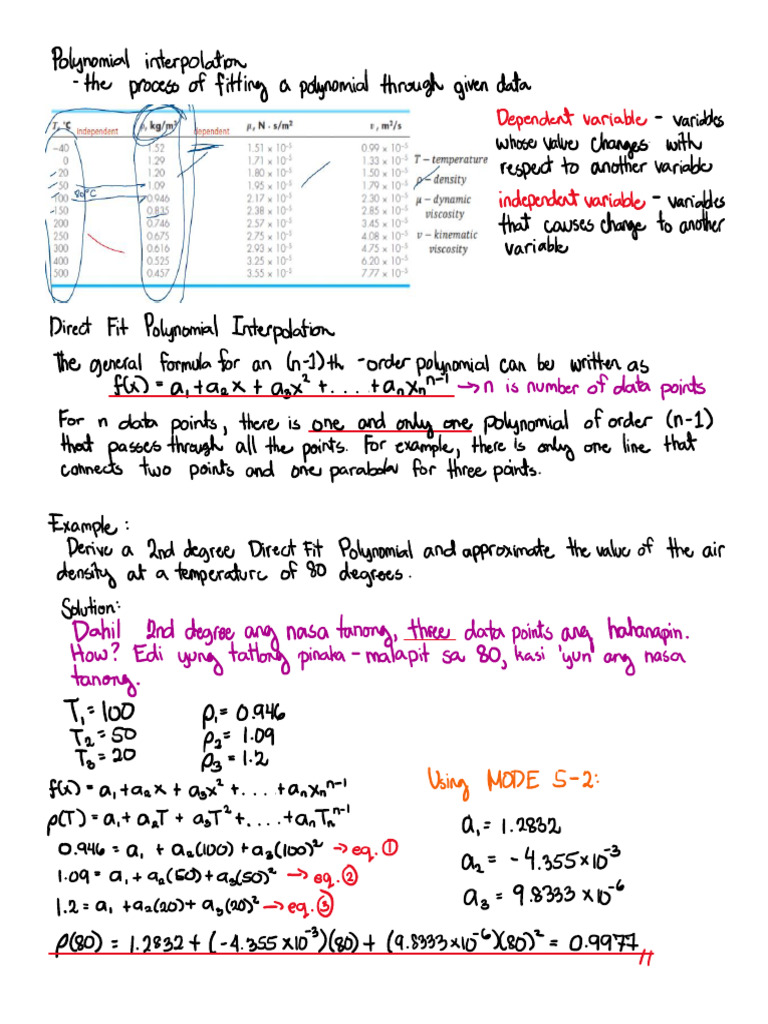 Polynomial interpolation
- the process of fitting a polynomial through given data
T, °C independent ρ, kg/m³ dependent μ, N · s/m² v, m²/s
-40 1.52 1.51 × 10⁻⁵ 0.99 × 10⁻⁵
0 1.29 1.71 × 10⁻⁵ 1.33 × 10⁻⁵
20 1.20 1.80 × 10⁻⁵ 1.50 × 10⁻⁵
50 1.09 1.95 × 10⁻⁵ 1.79 × 10⁻⁵
80°C
100 0.946 2.17 × 10⁻⁵ 2.30 × 10⁻⁵
150 0.835 2.38 × 10⁻⁵ 2.85 × 10⁻⁵
200 0.746 2.57 × 10⁻⁵ 3.45 × 10⁻⁵
250 0.675 2.75 × 10⁻⁵ 4.08 × 10⁻⁵
300 0.616 2.93 × 10⁻⁵ 4.75 × 10⁻⁵
400 0.525 3.25 × 10⁻⁵ 6.20 × 10⁻⁵
500 0.457 3.55 × 10⁻⁵ 7.77 × 10⁻⁵
T – temperature
ρ – density
μ – dynamic
viscosity
v – kinematic
viscosity
Dependent variable - variables
whose value changes with
respect to another variable
independent variable - variables
that causes change to another
variable
Direct Fit Polynomial Interpolation
The general formula for an (n-1)th -order polynomial can be written as
f(x) = a₁ + a₂x + a₃x² + . . . + aₙxₙⁿ⁻¹ → n is number of data points
For n data points, there is one and only one polynomial of order (n-1)
that passes through all the points. For example, there is only one line that
connects two points and one parabola for three points.
Example:
Derive a 2nd degree Direct Fit Polynomial and approximate the value of the air
density at a temperature of 80 degrees.
Solution:
Dahil 2nd degree ang nasa tanong, three data points ang hahanapin.
How? Edi yung tatlong pinaka-malapit sa 80, kasi 'yun ang nasa
tanong.
T₁ = 100 ρ₁ = 0.946
T₂ = 50 ρ₂ = 1.09
T₃ = 20 ρ₃ = 1.2
f(x) = a₁ + a₂x + a₃x² + . . . + aₙxₙⁿ⁻¹
ρ(T) = a₁ + a₂T + a₃T² + . . . + aₙTₙⁿ⁻¹
0.946 = a₁ + a₂(100) + a₃(100)² → eq. ①
1.09 = a₁ + a₂(50) + a₃(50)² → eq. ②
1.2 = a₁ + a₂(20) + a₃(20)² → eq. ③
Using MODE 5-2:
a₁ = 1.2832
a₂ = -4.355×10⁻³
a₃ = 9.8333 ×10⁻⁶
ρ(80) = 1.2832 + (-4.355 ×10⁻³)(80) + (9.8333×10⁻⁶)(80)² = 0.9977 //